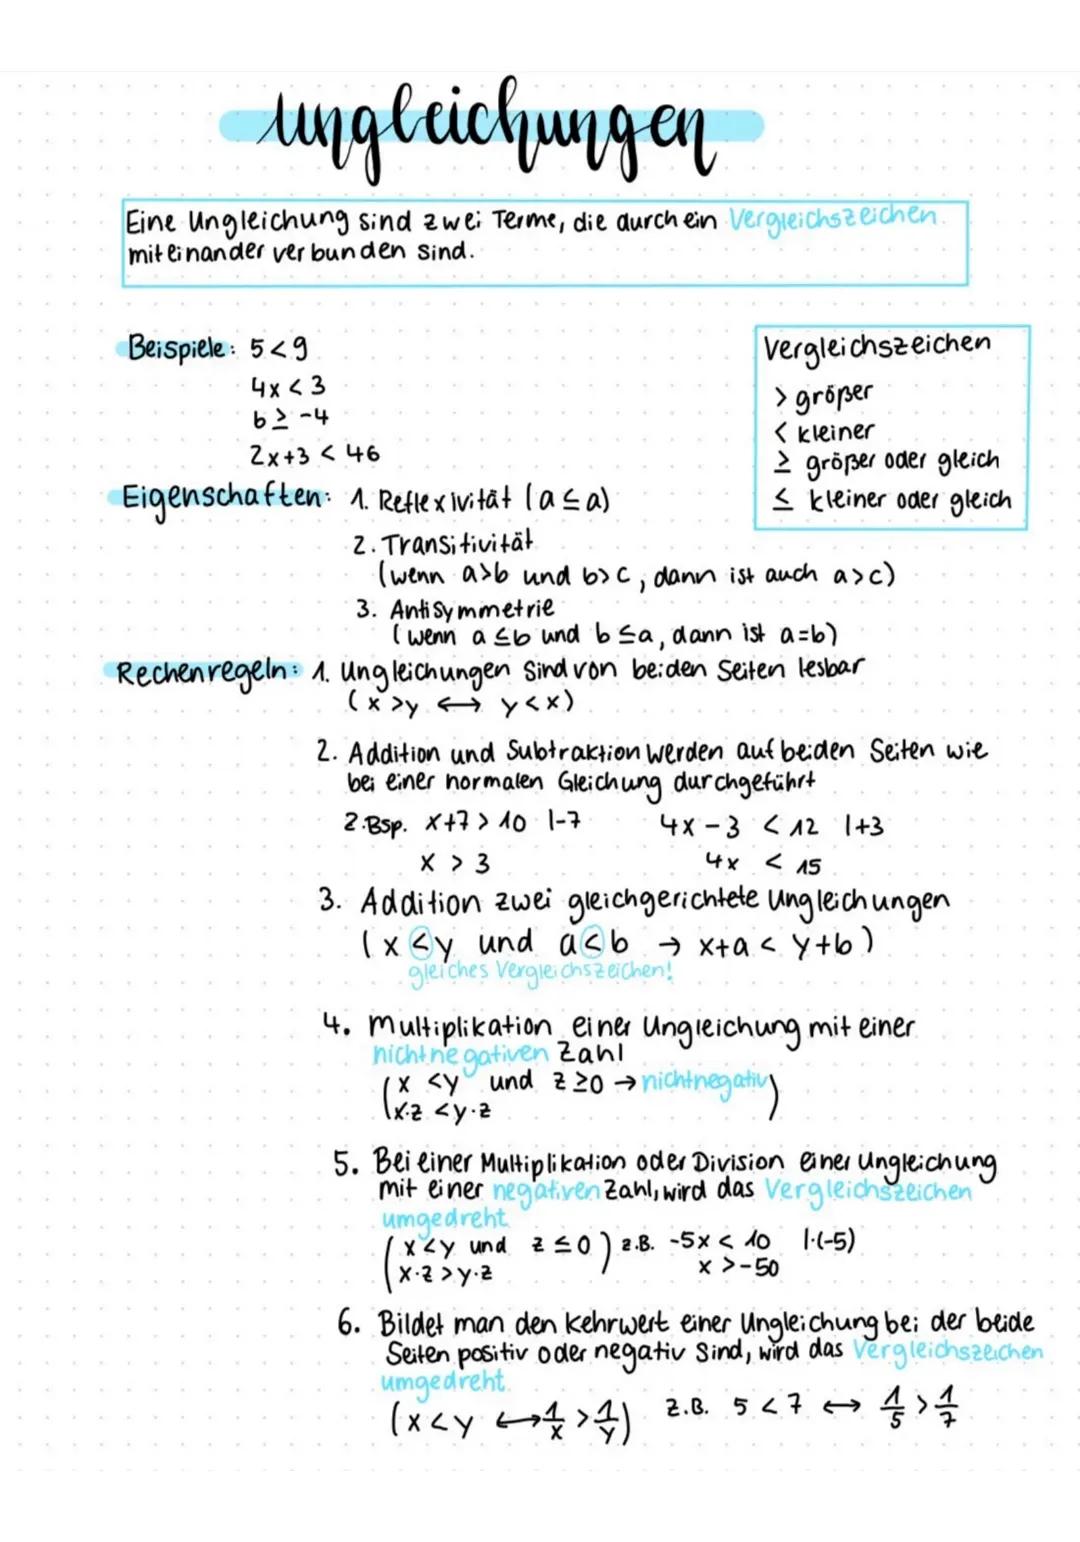 Ungleichungen
Eine Ungleichung sind zwei Terme, die durch ein Vergleichszeichen
miteinander verbunden sind.
Beispiele: 5 < 9
4x < 3
b ≥ -4
2x+3 < 46
Vergleichszeichen
> größer
< kleiner
≥ größer oder gleich
≤ kleiner oder gleich
Eigenschaften: 1. Reflexivität (a ≤ a)
2. Transitivität
(wenn a>b und b>c, dann ist auch a>c)
3. Antisymmetrie
(wenn a ≤ b und b ≤ a, dann ist a=b)
Rechenregeln: 1. Ungleichungen sind von beiden Seiten lesbar
(x >y ↔ y<x)
2. Addition und Subtraktion werden auf beiden Seiten wie
bei einer normalen Gleichung durchgeführt
z.Bsp. x+7 > 10 |-7 4x - 3 < 12 |+3
x > 3 4x < 15
3. Addition zwei gleichgerichtete Ungleichungen
(x < y und a < b → x+a < y+b)
gleiches Vergleichszeichen!
4. Multiplikation einer Ungleichung mit einer
nichtnegativen Zahl
(x <y und z ≥0 → nichtnegativ)
x·z <y·z
5. Bei einer Multiplikation oder Division einer Ungleichung
mit einer negativen Zahl, wird das Vergleichszeichen
umgedreht
(x<y und z ≤ 0) z.B. -5x < 10 |·(-5)
x·z >y·z x >-50
6. Bildet man den Kehrwert einer Ungleichung bei der beide
Seiten positiv oder negativ sind, wird das Vergleichszeichen
umgedreht
(x<y ↔ 1/x > 1/y) z.B. 5 < 7 ↔ 1/5 > 1/7